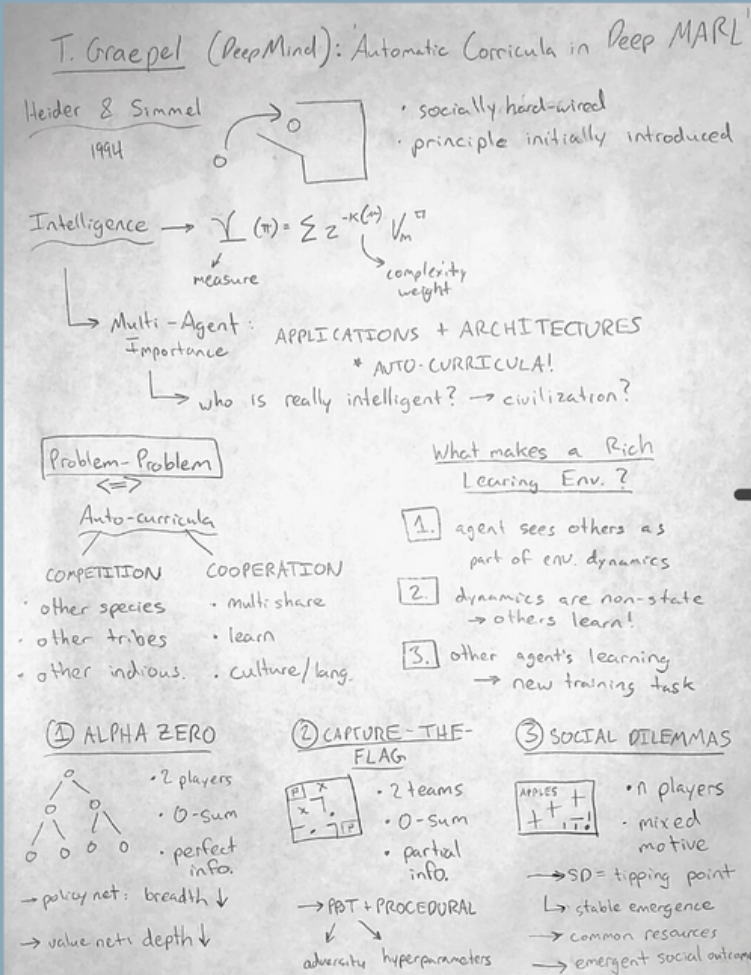 T. Graepel (DeepMind): Automatic Corricula in Deep MARL
Heider & Simmel
1994
• socially hard-wired
• principle initially introduced
Intelligence → Υ (π) = Σ 2^-K(m) V_m^π
measure
complexity
weight
Multi-Agent:
Importance
APPLICATIONS + ARCHITECTURES
* AUTO-CURRICULA!
who is really intelligent? → civilization?
Problem-Problem
<=>
Auto-curricula
COMPETITION
• other species
• other tribes
• other indious.
COOPERATION
• multi share
• learn
• culture/lang.
What makes a Rich
Learing Env.?
1. agent sees others as
part of env. dynamics
2. dynamics are non-state
→ others learn!
3. other agent's learning
→ new training task
① ALPHA ZERO
• 2 players
• 0-sum
• perfect
info.
→ policy net: breadth ↓
→ value net: depth ↓
② CAPTURE-THE-
FLAG
• 2 teams
• 0-sum
• partial
info.
→ PBT + PROCEDURAL
adversity hyperparameters
③ SOCIAL DILEMMAS
APPLES
• n players
• mixed
motive
→ SD = tipping point
↳ stable emergence
→ common resources
→ emergent social outcom